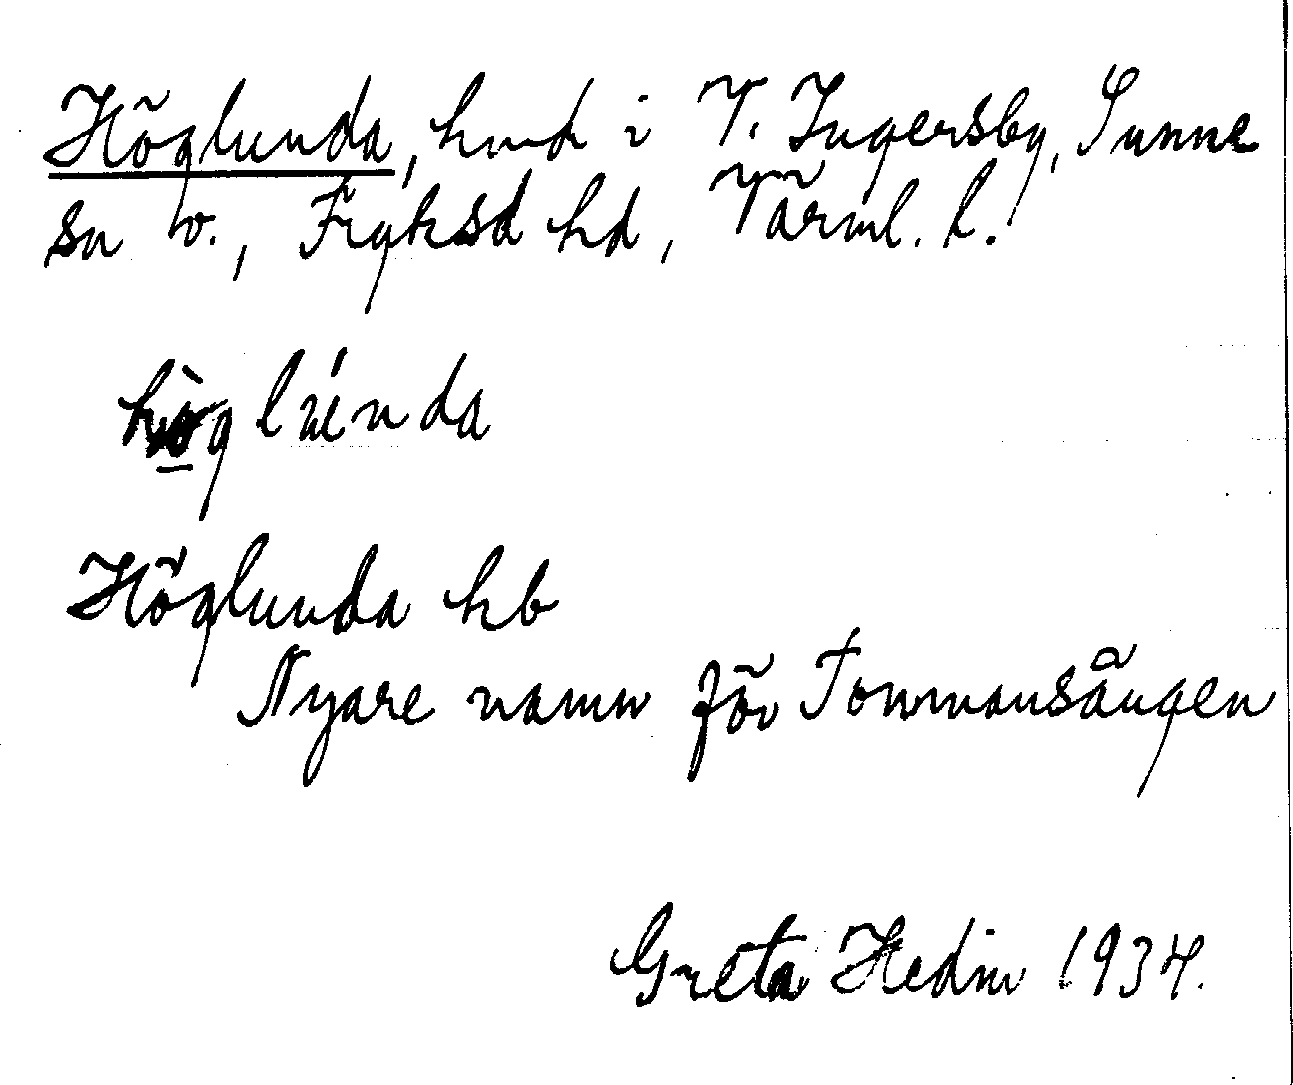 Höglunda, hmd i V. Ingersby, Sunne
sn o., Fryksd hd, Värml. l.
hö̀glúnda
Höglunda hb
Nyare namn för Tommansängen
Greta Hedin 1934.